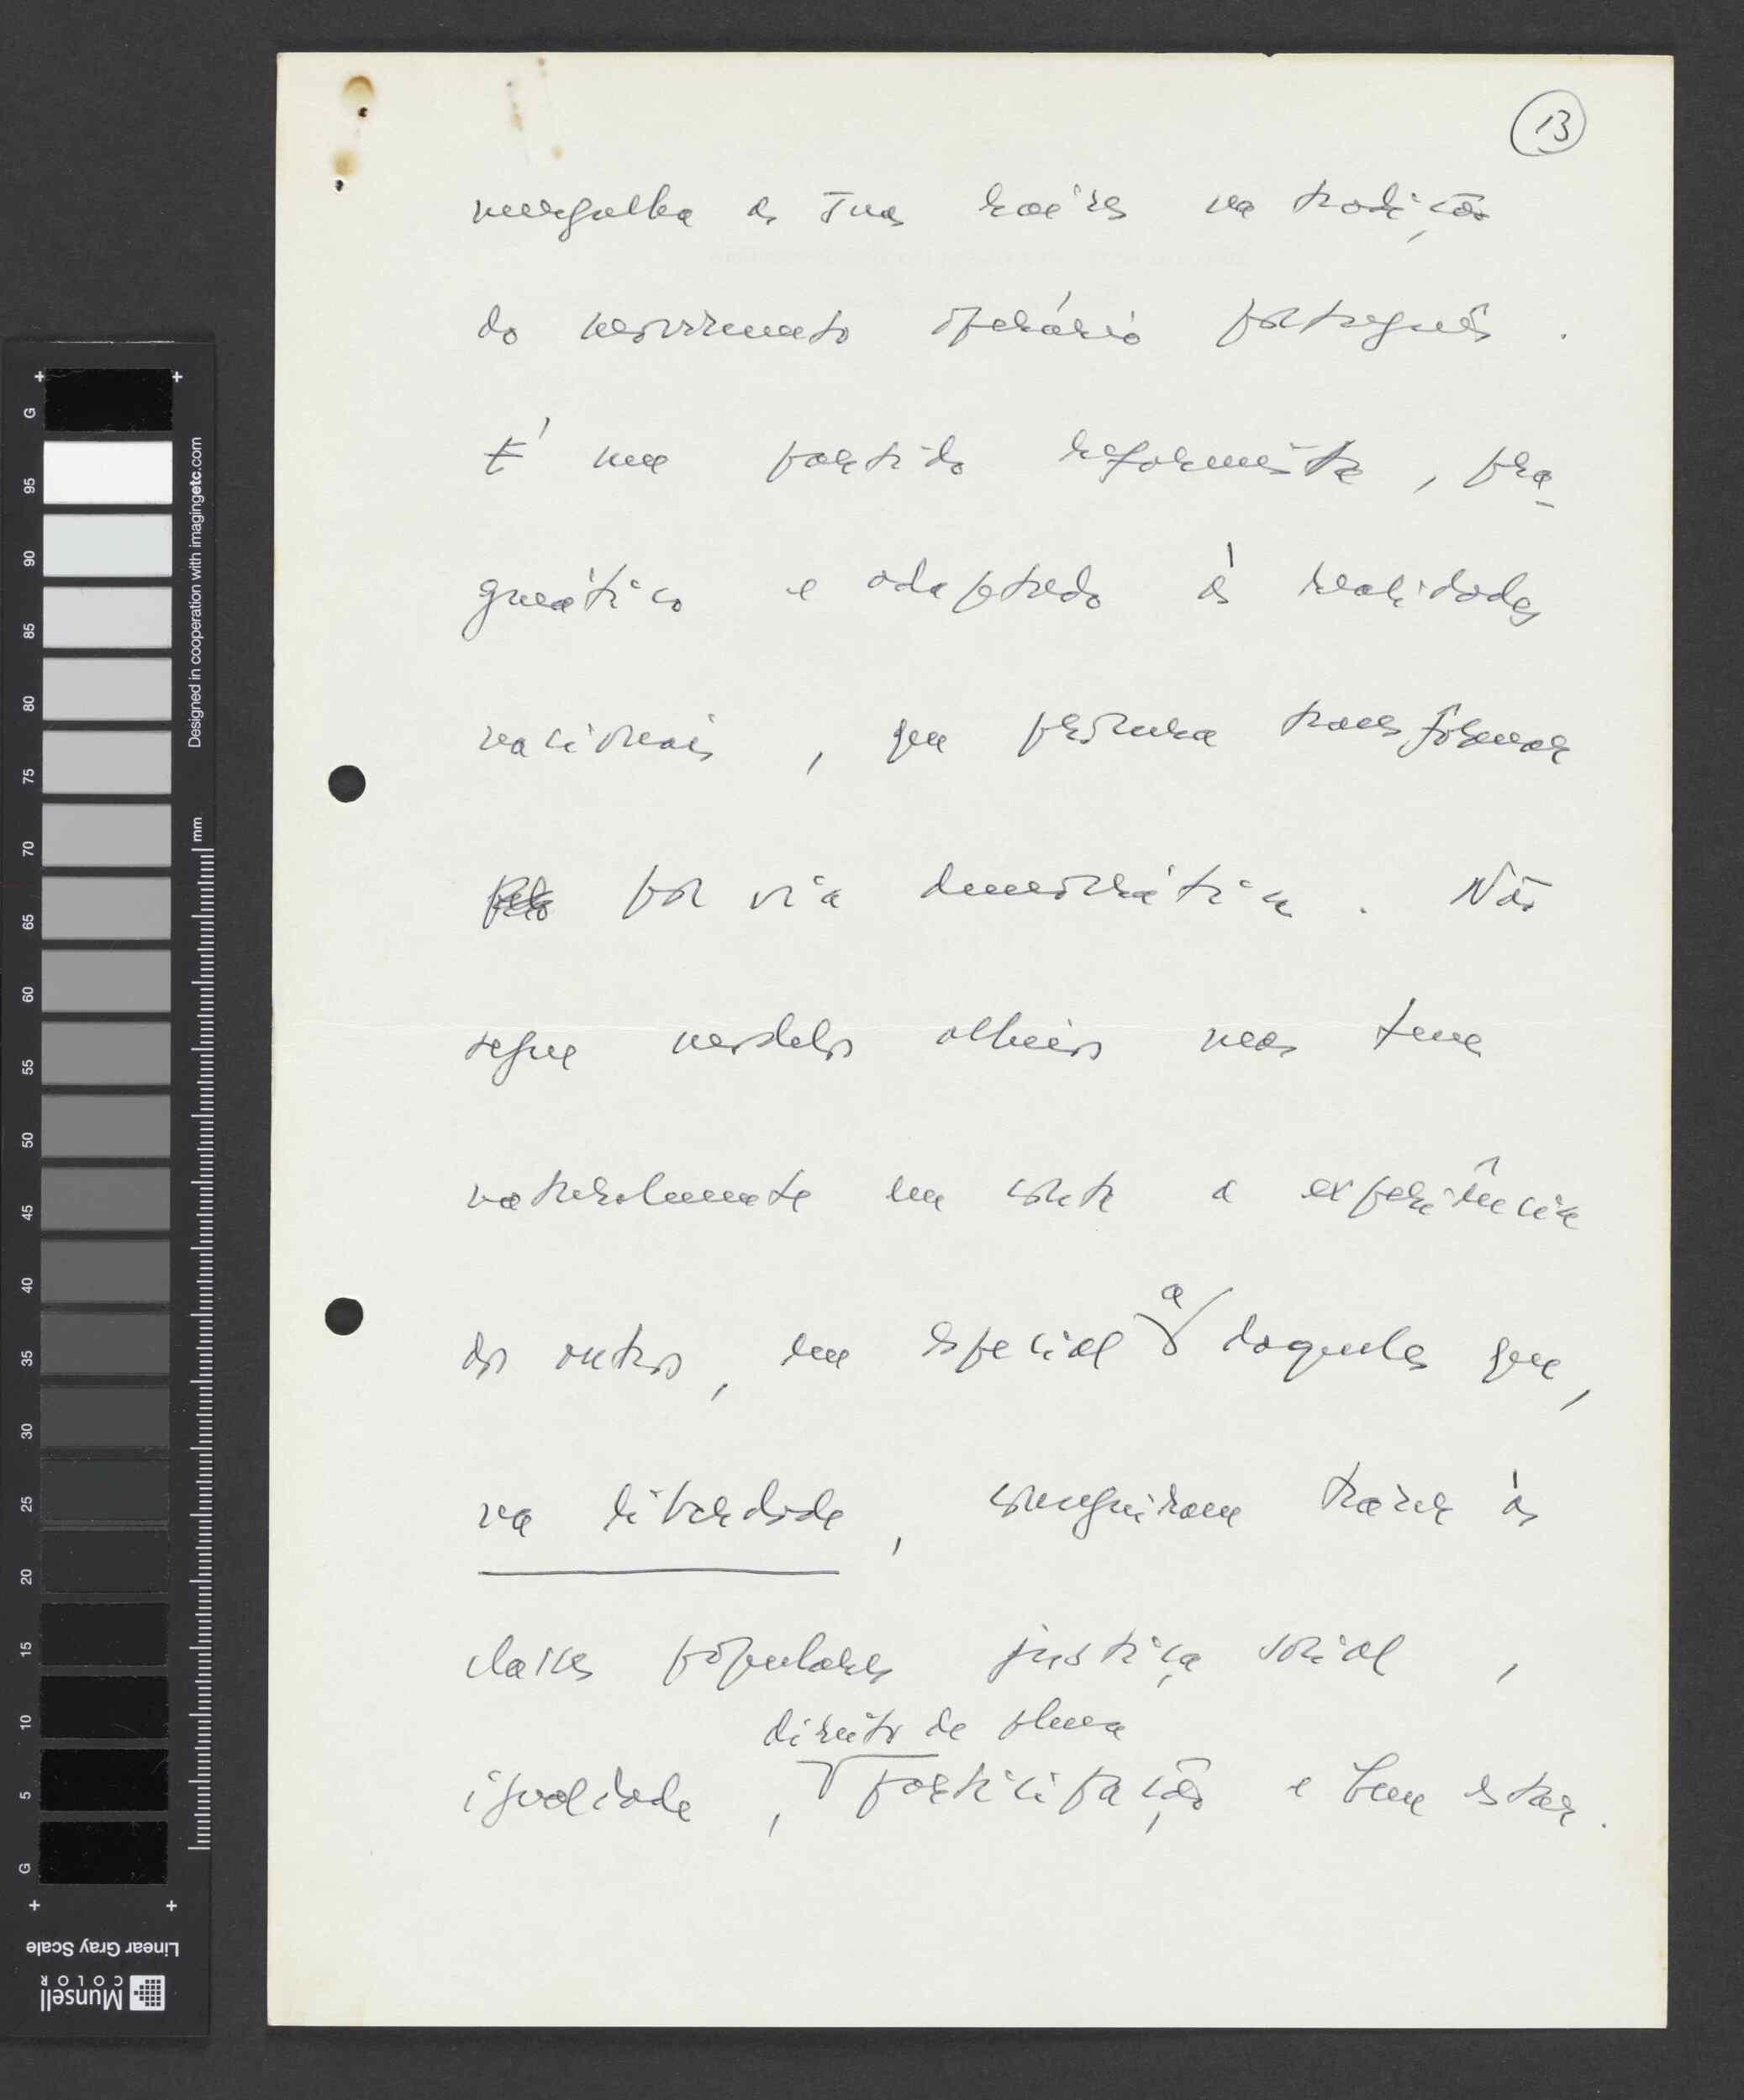 13
mergulha as suas raízes na tradição
do movimento operário português.
É um partido reformista, pra-
gmático e adaptado às realidades
nacionais, que procura transformar
por via democrática. Não
segue modelos alheios mas tem
naturalmente em conta a experiência
dos outros, em especial a daqueles que,
na liberdade, conseguiram trazer às
classes populares justiça social,
direito de plena
igualdade, participação e bem estar.
G
95
90
85
80
75
70
65
60
55
50
45
40
35
30
25
20
15
10
5
G
Designed in cooperation with imagingetc.com
mm
Linear Gray Scale
Munsell
COLOR